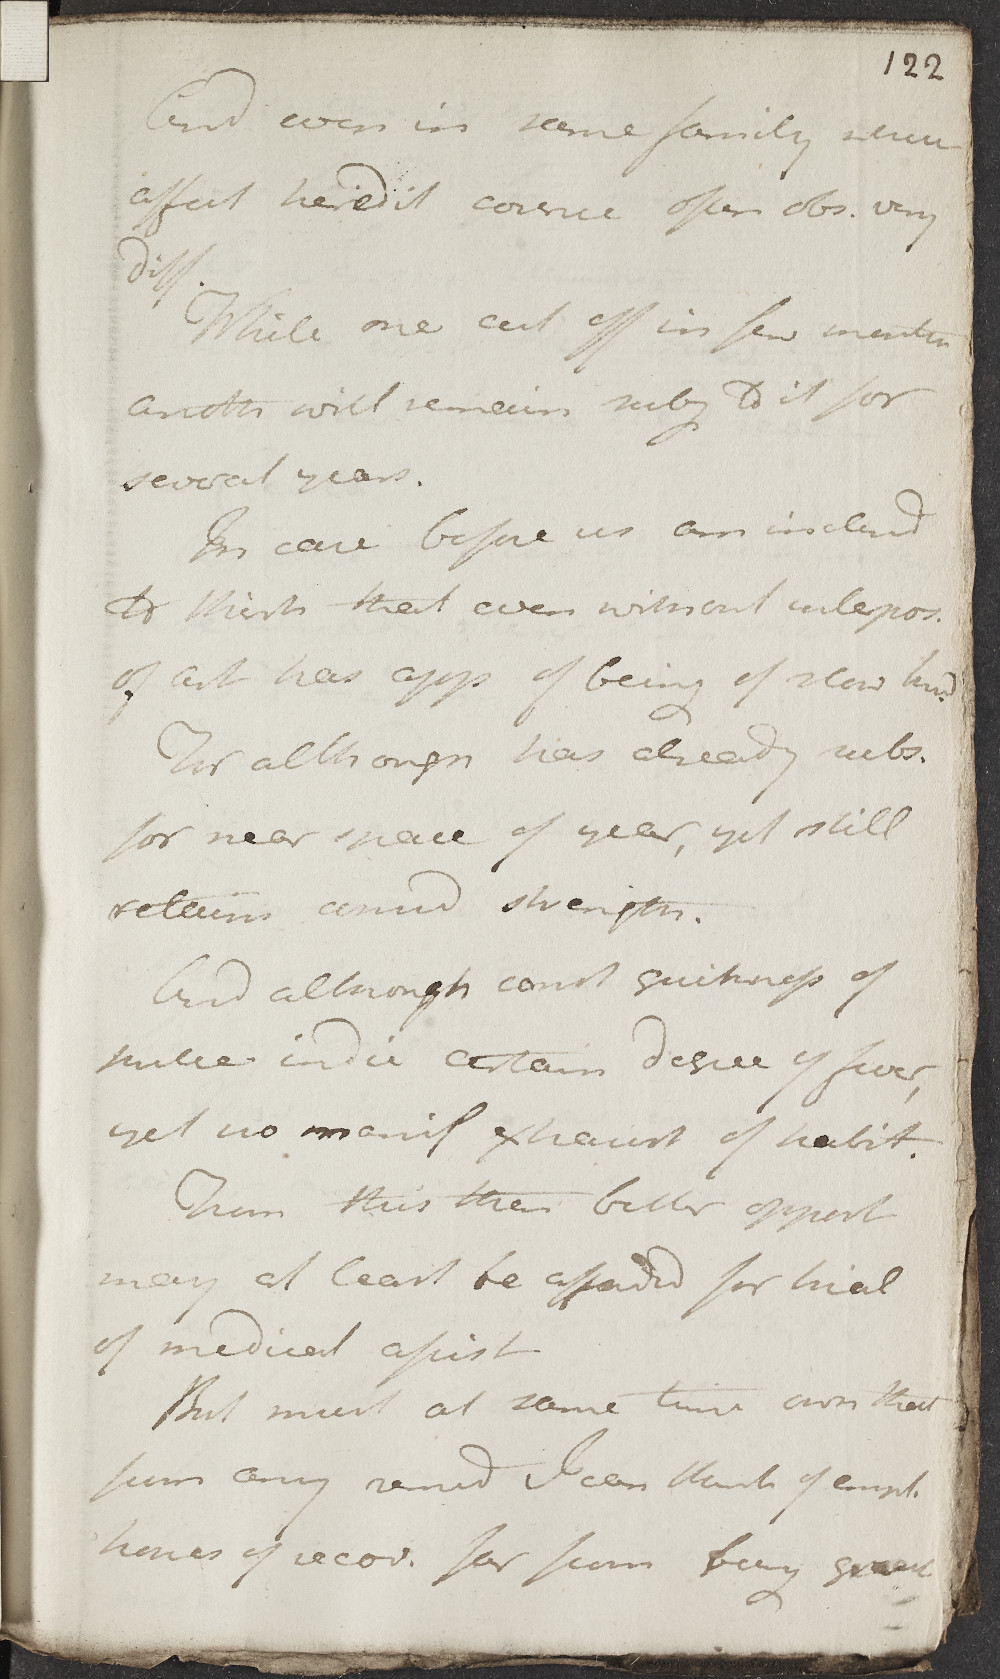 122
And even in same family where
affect heredit course often obs. very
diff.
While one cut off in few months
anoth will remain subj to it for
several years.
In case before us am inclend
to think that even without interpos.
of art has app of being of slow kind.
For although has already subs.
for near space of year, yet still
retains consid strength.
And although const quickness of
pulse indic certain degree of fever,
yet no manif exhaust of habit.
From this then better opport
may at least be afford for trial
of medical assist
But must at same time own that
from any remed I can think of empl.
hopes of recov. far from being great